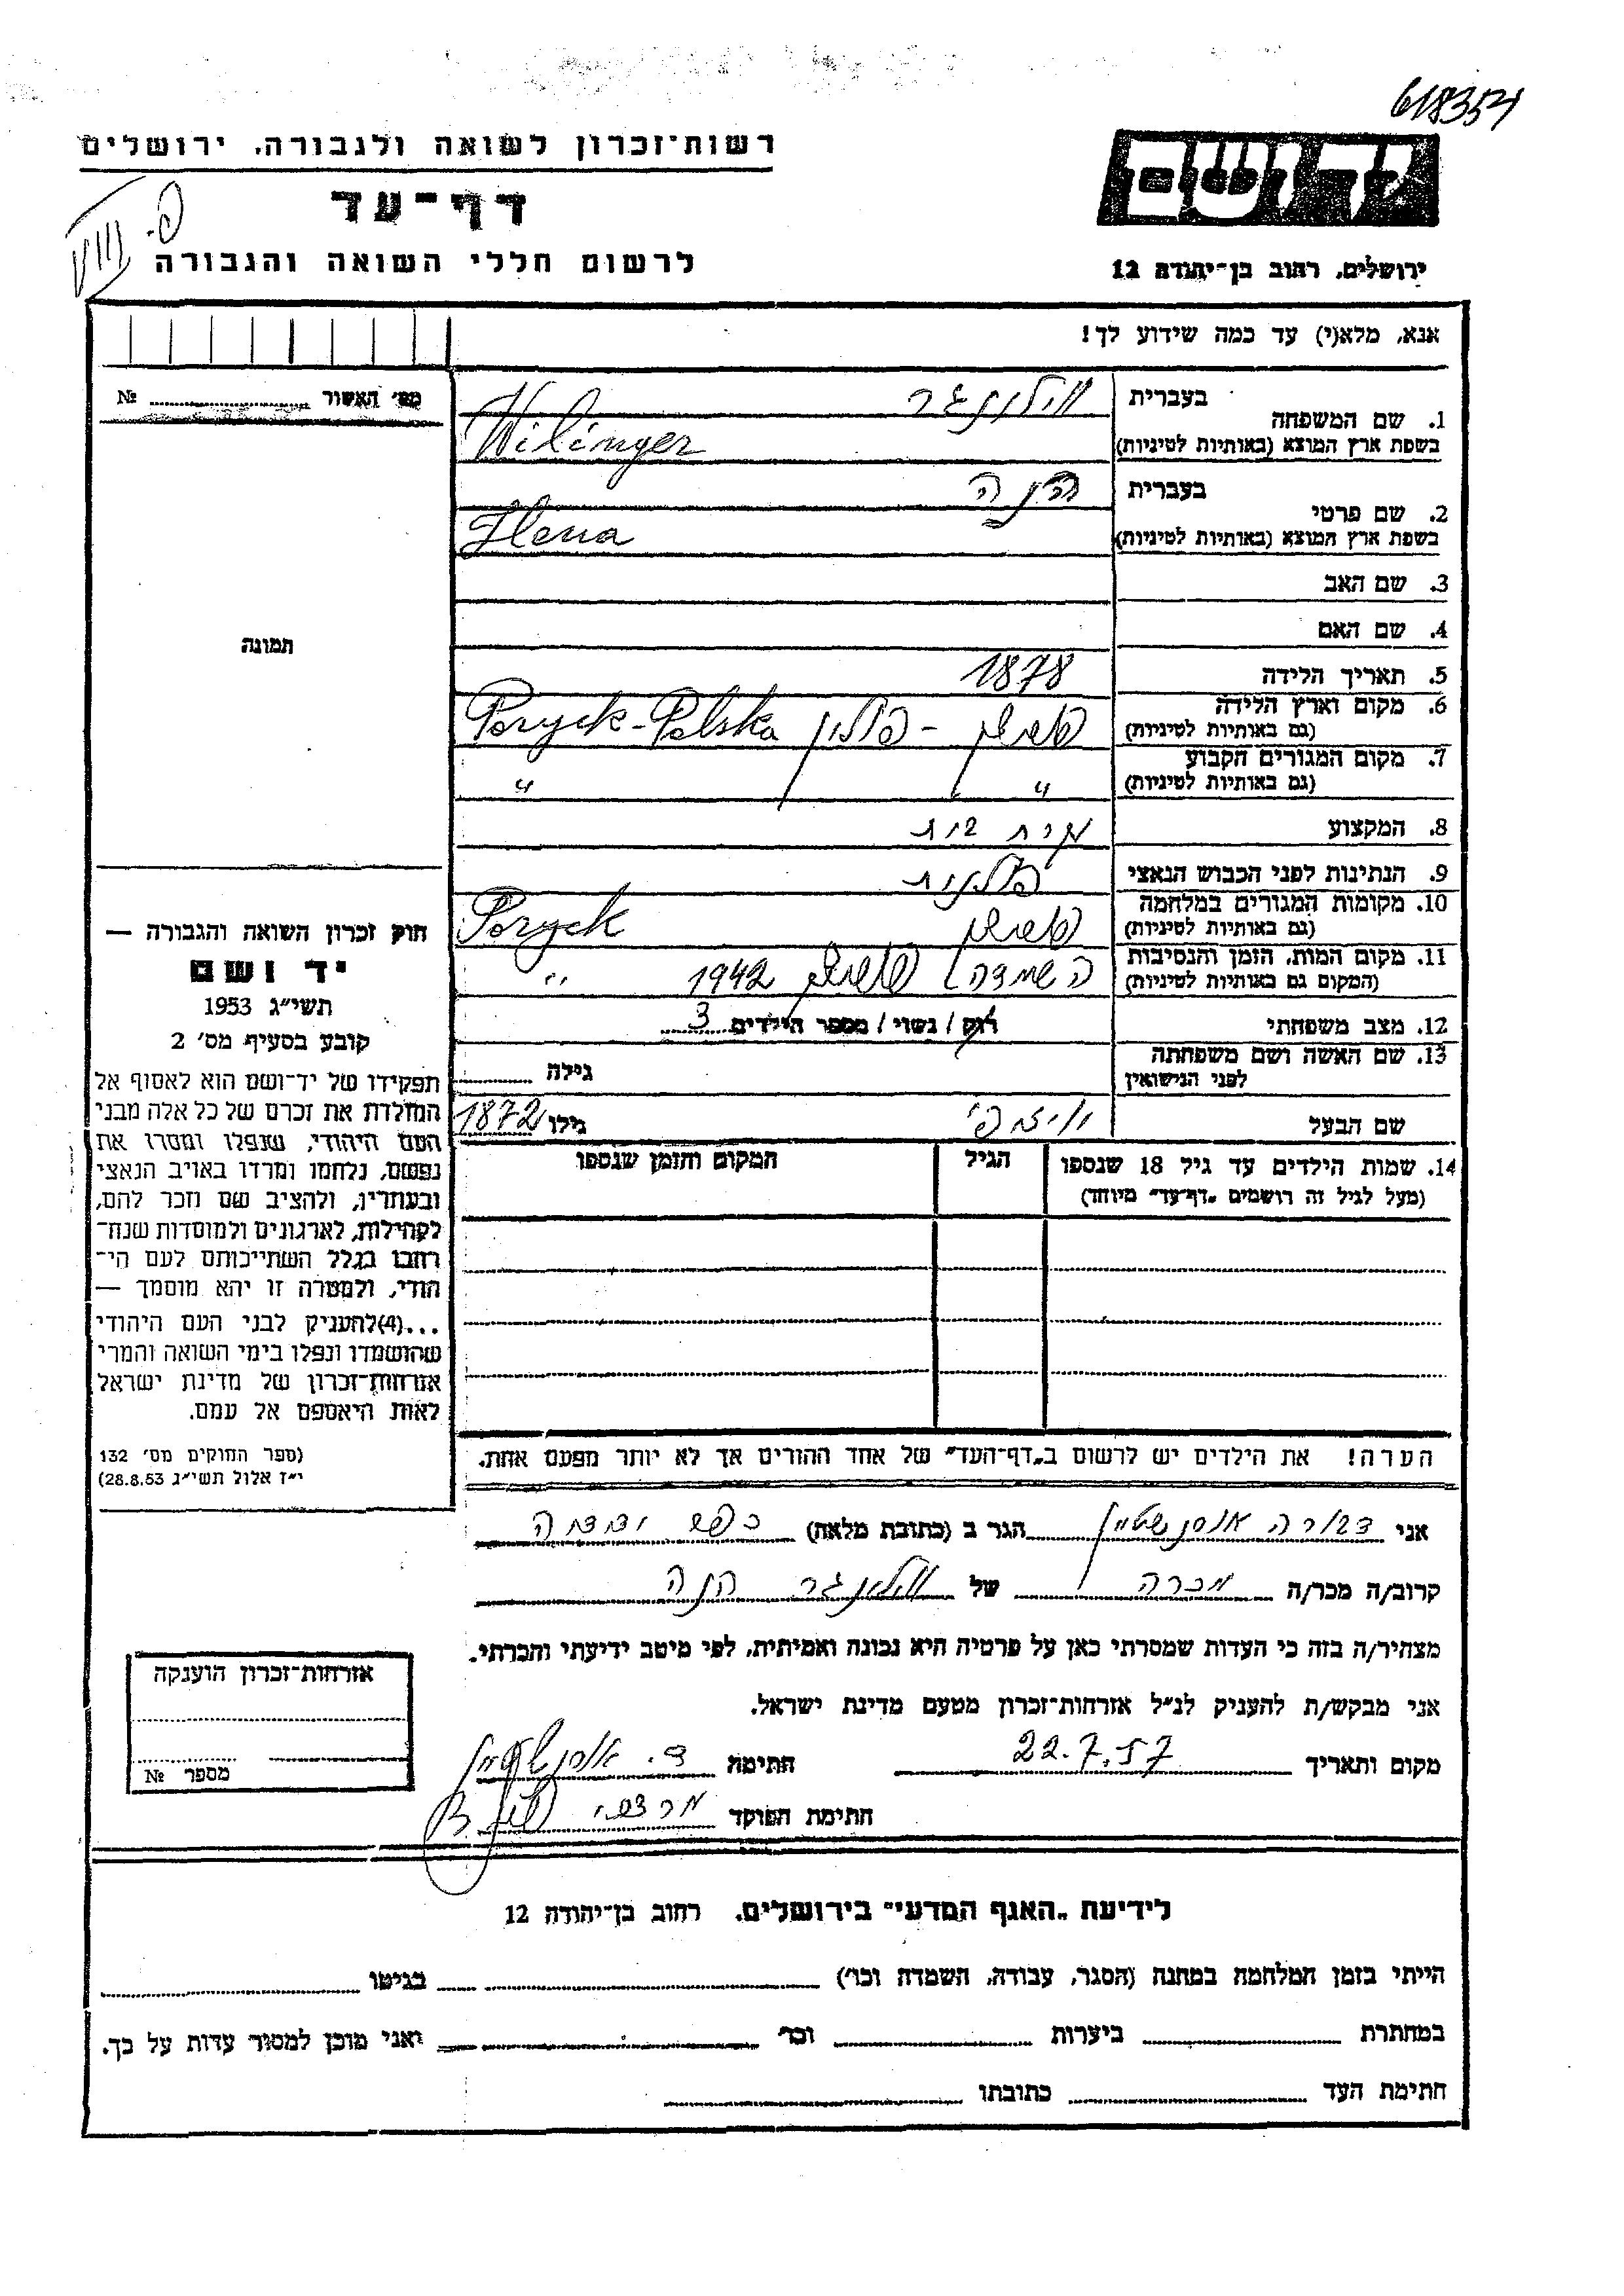 618354
רשות־זכרון לשואה ולגבורה, ירושלים
דף־עד
לרשום חללי השואה והגבורה
VIII פ.
יד ושם
ירושלים, רחוב בן־יהודה 12
אנא, מלא(י) עד כמה שידוע לך!
מס׳ האשור № 
1. שם המשפחה
בעברית ווילינגר
בשפת ארץ המוצא (באותיות לטיניות) Wilinger
2. שם פרטי
בעברית הנה
בשפת ארץ המוצא (באותיות לטיניות) Hena
3. שם האב
4. שם האם
5. תאריך הלידה 1878
6. מקום וארץ הלידה
(גם באותיות לטיניות) פוריצק - פולין Poryck-Polska
7. מקום המגורים הקבוע
(גם באותיות לטיניות) " "
8. המקצוע
9. הנתינות לפני הכבוש הנאצי פולנית
10. מקומות המגורים במלחמה
(גם באותיות לטיניות) Poryck
11. מקום המות, הזמן והנסיבות
(המקום גם באותיות לטיניות) 1942 "
12. מצב משפחתי רוק / נשוי / מספר הילדים 3
13. שם האשה ושם משפחתה
לפני הנישואין גילה
שם הבעל גילו 1872
14. שמות הילדים עד גיל 18 שנספו
(מעל לגיל זה רושמים „דף־עד״ מיוחד)
הגיל
המקום והזמן שנספו
הערה! את הילדים יש לרשום ב„דף־העד״ של אחד ההורים אך לא יותר מפעם אחת.
תמונה
חוק זכרון השואה והגבורה —
יד ושם
תשי״ג 1953
קובע בסעיף מס׳ 2
תפקידו של יד־ושם הוא לאסוף אל
המולדת את זכרם של כל אלה מבני
העם היהודי, שנפלו ומסרו את
נפשם, נלחמו ומרדו באויב הנאצי
ובעוזריו, ולהציב שם וזכר להם,
לקהילות, לארגונים ולמוסדות שנח־
רבו בגלל השתייכותם לעם הי־
הודי, ולמטרה זו יהא מוסמך —
...(4)להעניק לבני העם היהודי
שהושמדו ונפלו בימי השואה והמרי
אזרחות־זכרון של מדינת ישראל
לאות היאספם אל עמם.
(ספר החוקים מס׳ 132
י״ז אלול תשי״ג 28.8.53)
אני דבורה הגר ב (כתובת מלאה)
קרוב/ה מכר/ה מכרה של ווילינגר הנה
מצהיר/ה בזה כי העדות שמסרתי כאן על פרטיה היא נכונה ואמיתית, לפי מיטב ידיעתי והכרתי.
אני מבקש/ת להעניק לנ״ל אזרחות־זכרון מטעם מדינת ישראל.
מקום ותאריך 22.7.57 חתימה
חתימת הפוקד מרדכי
אזרחות־זכרון הוענקה
מספר №
לידיעת „האגף המדעי״ בירושלים, רחוב בן־יהודה 12
הייתי בזמן המלחמה במחנה (הסגר, עבודה, השמדה וכו׳) בגיטו
במחתרת ביערות וכו׳ ואני מוכן למסור עדות על כך.
חתימת העד כתובתו